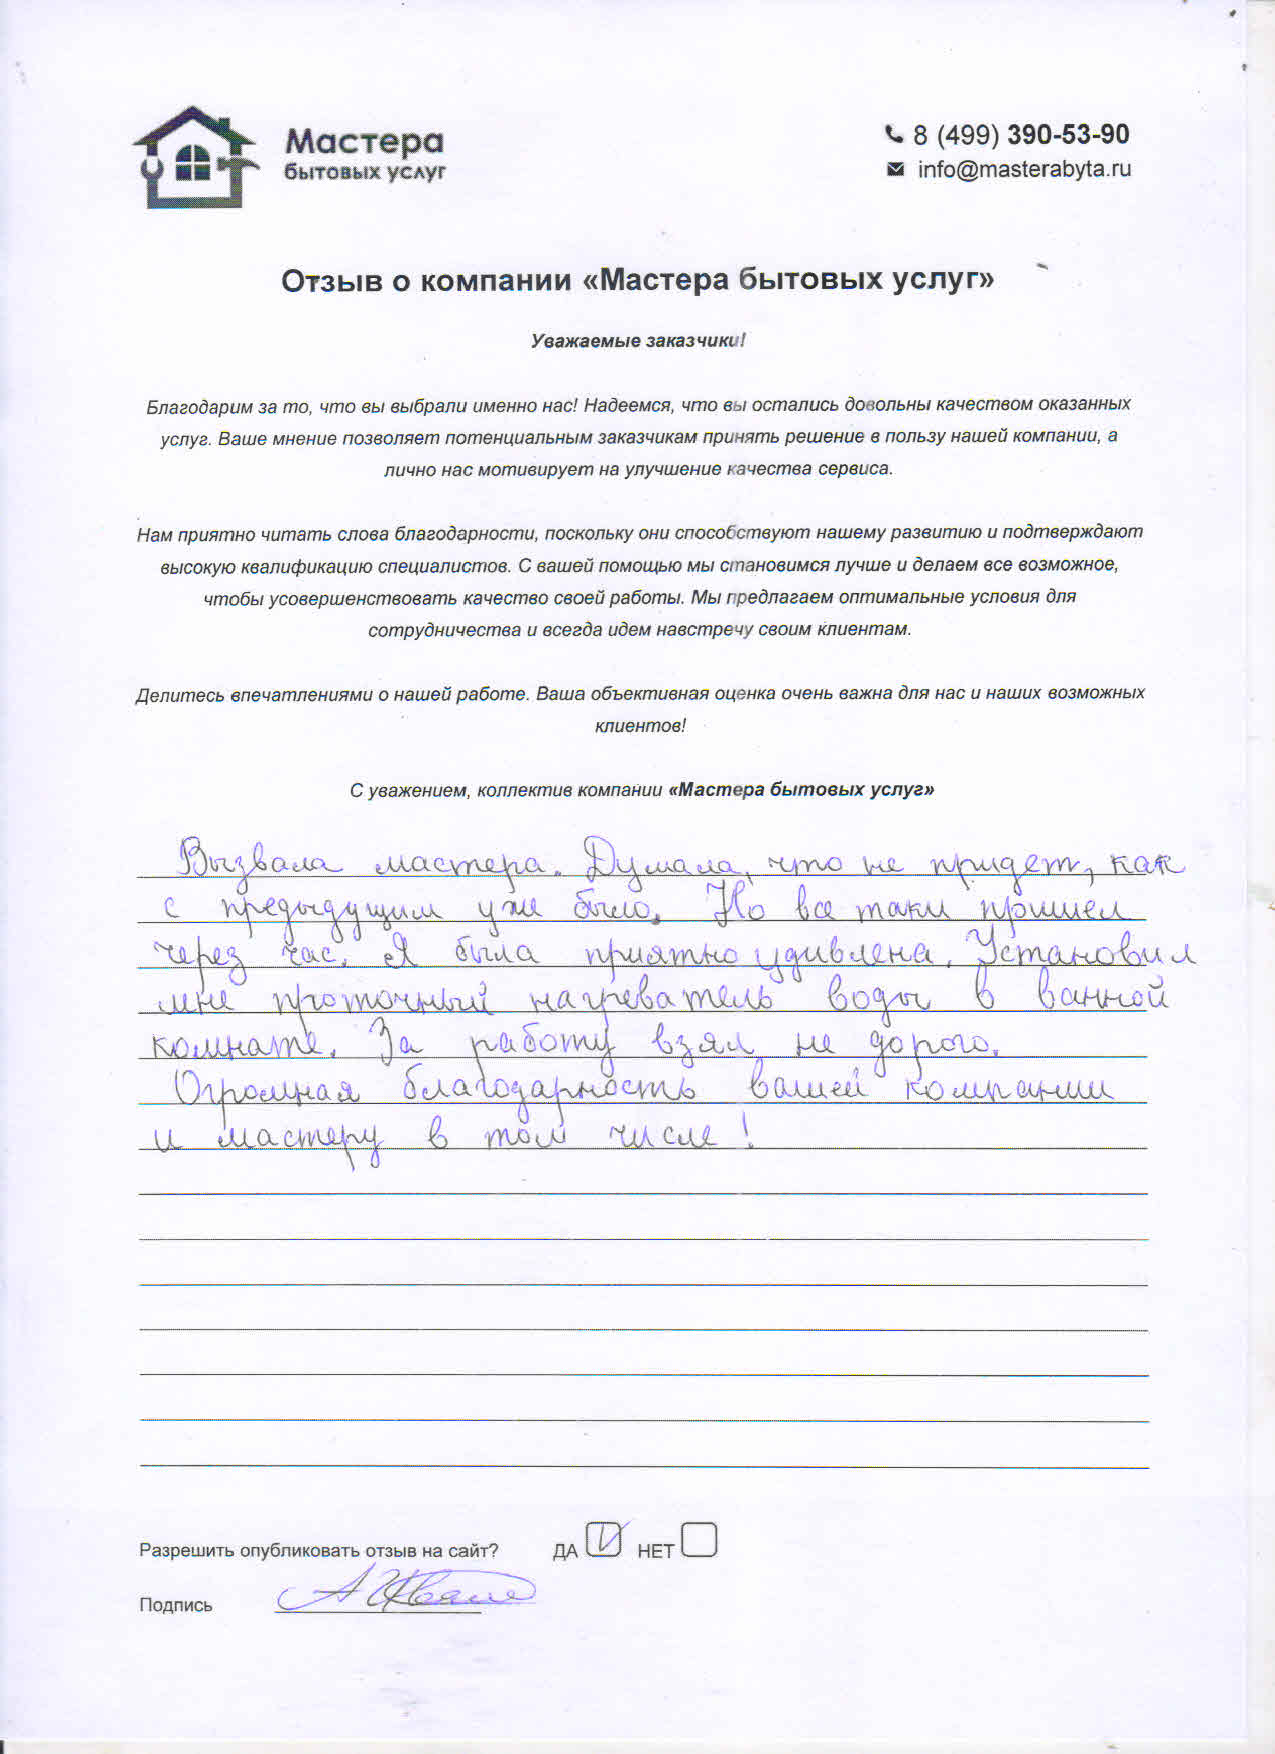 Мастера
бытовых услуг
8 (499) 390-53-90
info@masterabyta.ru
Отзыв о компании «Мастера бытовых услуг»
Уважаемые заказчики!
Благодарим за то, что вы выбрали именно нас! Надеемся, что вы остались довольны качеством оказанных
услуг. Ваше мнение позволяет потенциальным заказчикам принять решение в пользу нашей компании, а
лично нас мотивирует на улучшение качества сервиса.
Нам приятно читать слова благодарности, поскольку они способствуют нашему развитию и подтверждают
высокую квалификацию специалистов. С вашей помощью мы становимся лучше и делаем все возможное,
чтобы усовершенствовать качество своей работы. Мы предлагаем оптимальные условия для
сотрудничества и всегда идем навстречу своим клиентам.
Делитесь впечатлениями о нашей работе. Ваша объективная оценка очень важна для нас и наших возможных
клиентов!
С уважением, коллектив компании «Мастера бытовых услуг»
Вызвала мастера. Думала, что не придет, как
с предыдущим уже было. Но все таки пришел
через час. Я была приятно удивлена. Установил
мне проточный нагреватель воды в ванной
комнате. За работу взял не дорого.
Огромная благодарность вашей компании
и мастеру в том числе!
Разрешить опубликовать отзыв на сайт? ДА НЕТ
Подпись